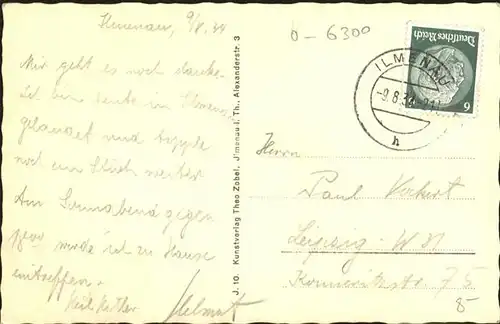 Ilmenau, 9/8.34
Mir geht es noch danke.
Ich bin heute in Ilmenau
gelandet und tipple
noch ein Stück weiter
Am Sonnabend gegen
werde ich zu Hause
eintreffen.
Heil Hitler Helmut
J. 10. Kunstverlag Theo Zobel, J'lmenau i. Th., Alexanderstr. 3
0-6300
Deutsches Reich
6
ILMENAU
-9.8.34
h
Herrn
Paul
Leipzig-W 31
75
8-